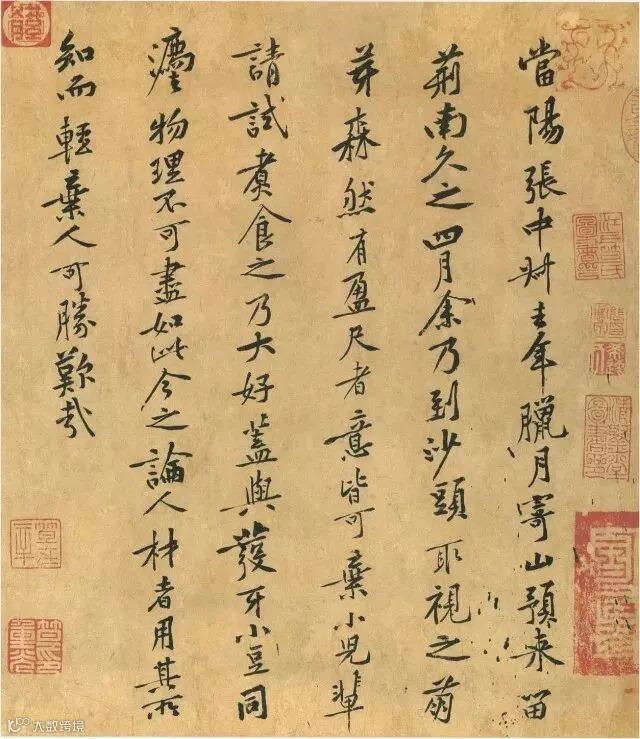 當陽張中叔去年臘月寄山預來留
荊南久之四月余乃到沙頭取視之萌
芽森然有盈尺者意皆可棄小兒輩
請試煮食之乃大好蓋與發牙小豆同
灋物理不可盡如此今之論人材者用其所
知而輕棄人可勝歎哉
大数跨境